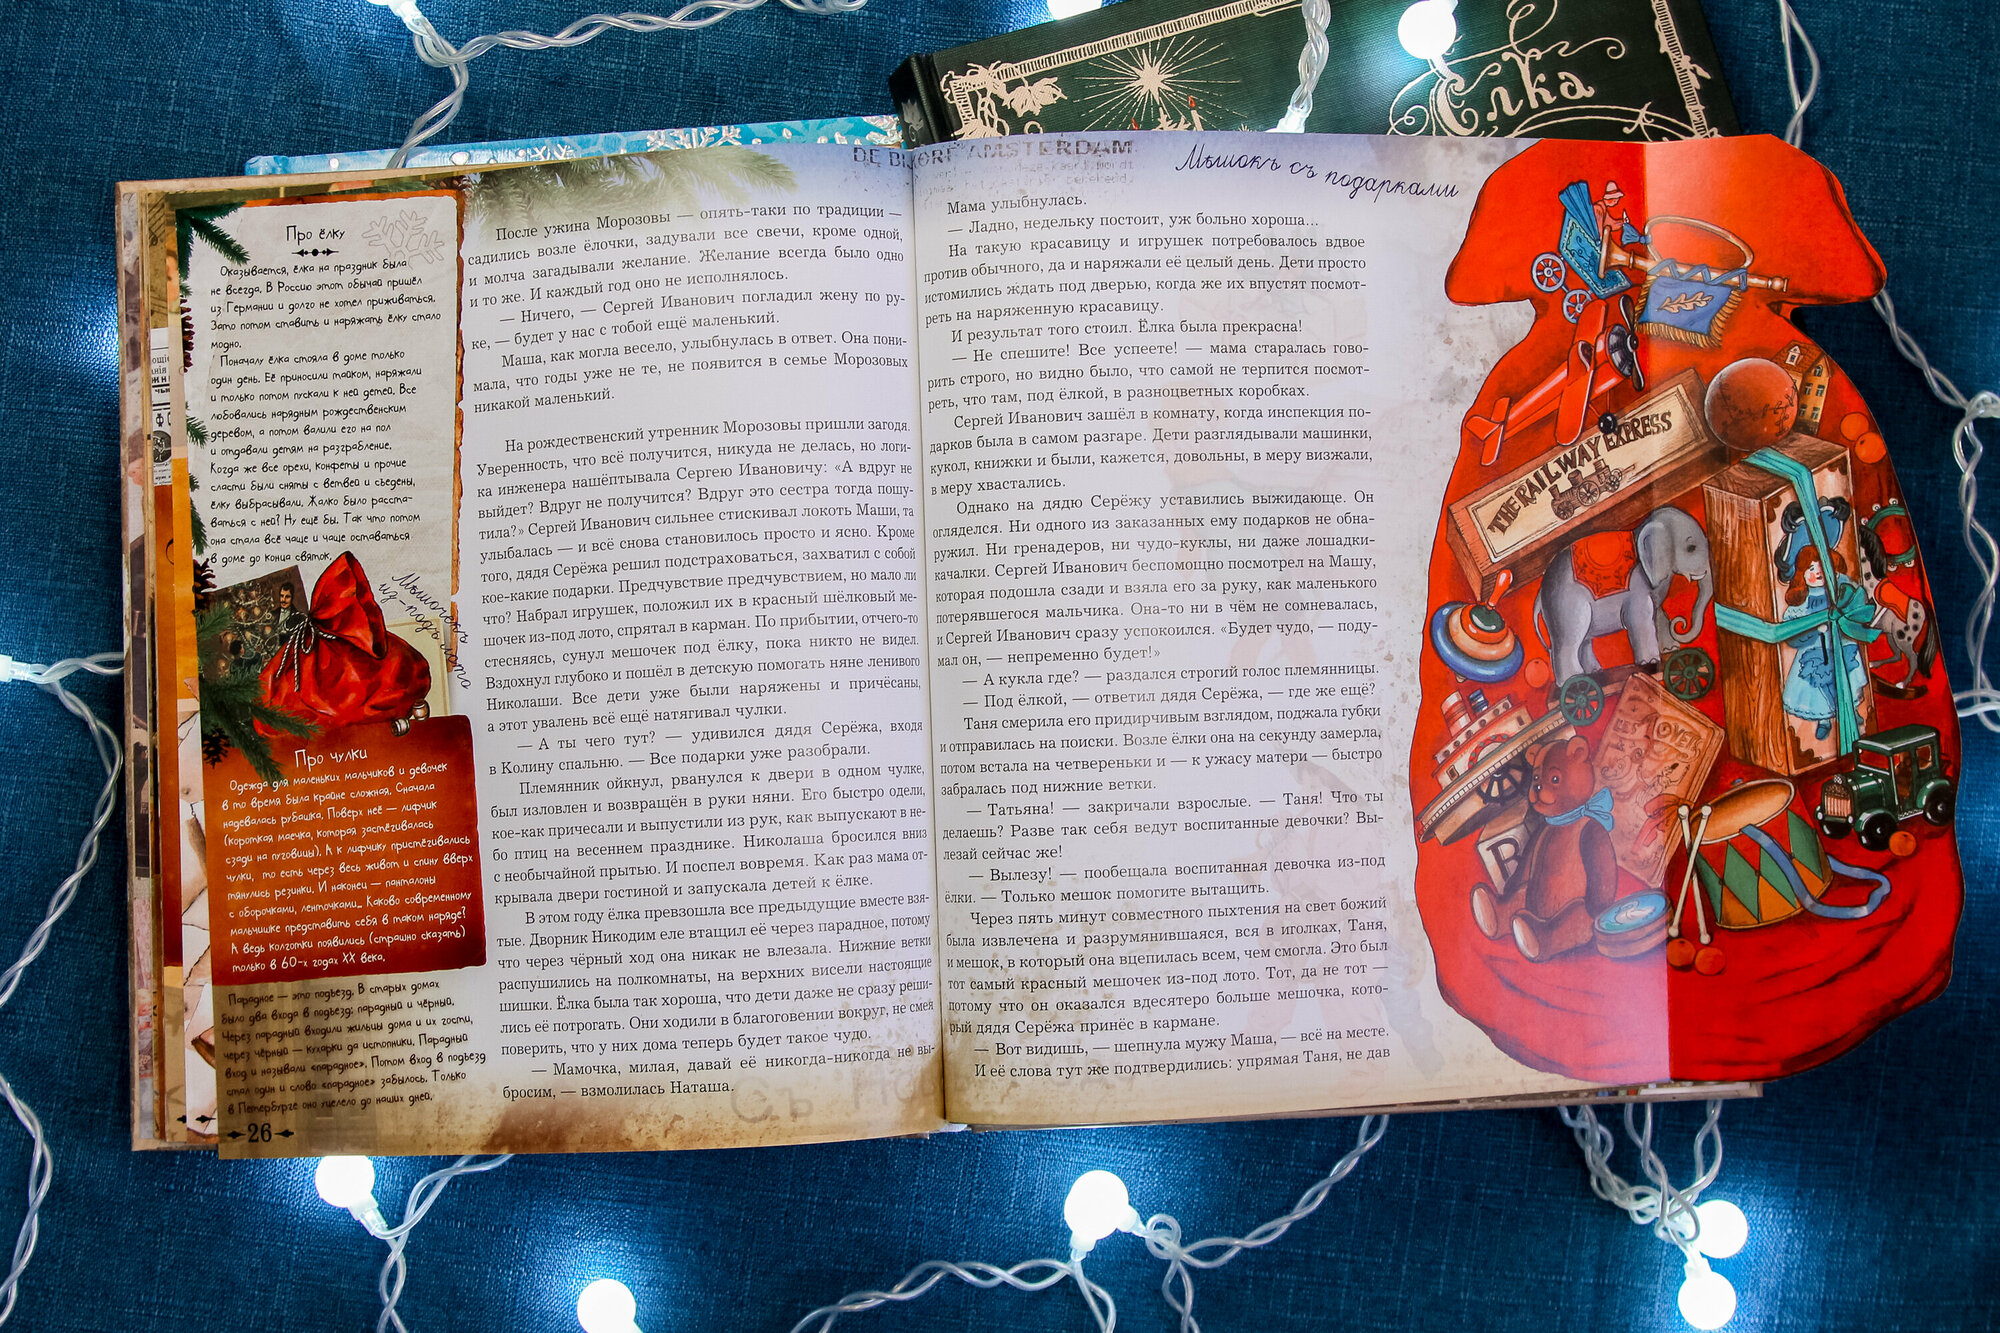 Ёлка
Про ёлку
Оказывается, ёлка на праздник была
не всегда. В Россию этот обычай пришёл
из Германии и долго не хотел приживаться.
Зато потом ставить и наряжать ёлку стало
модно.
Поначалу ёлка стояла в доме только
один день. Её приносили тайком, наряжали
и только потом пускали к ней детей. Все
любовались нарядным рождественским
деревом, а потом валили его на пол
и отдавали детям на разграбление.
Когда же все орехи, конфеты и прочие
сласти были сняты с ветвей и съедены,
ёлку выбрасывали. Жалко было расста-
ваться с ней? Ну ещё бы. Так что потом
она стала всё чаще и чаще оставаться
в доме до конца святок.
Мышочекъ
из-подъ лото
Про чулки
Одежда для маленьких мальчиков и девочек
в то время была крайне сложная. Сначала
надевалась рубашка. Поверх неё — лифчик
(короткая маечка, которая застёгивалась
сзади на пуговицы). А к лифчику пристёгивались
чулки, то есть через весь живот и спину вверх
тянулись резинки. И наконец — панталоны
с оборочками, ленточками... Каково современному
мальчишке представить себя в таком наряде?
А ведь колготки появились (страшно сказать)
только в 60-х годах XX века.
Парадное — это подъезд. В старых домах
было два входа в подъезд: парадный и чёрный.
Через парадный входили жильцы дома и их гости,
через чёрный — кухарки да истопники. Парадный
вход и называли «парадное». Потом вход в подъезд
стал один и слово «парадное» забылось. Только
в Петербурге оно уцелело до наших дней.
26
После ужина Морозовы — опять-таки по традиции —
садились возле ёлочки, задували все свечи, кроме одной,
и молча загадывали желание. Желание всегда было одно
и то же. И каждый год оно не исполнялось.
— Ничего, — Сергей Иванович погладил жену по ру-
ке, — будет у нас с тобой ещё маленький.
Маша, как могла весело, улыбнулась в ответ. Она пони-
мала, что годы уже не те, не появится в семье Морозовых
никакой маленький.
На рождественский утренник Морозовы пришли загодя.
Уверенность, что всё получится, никуда не делась, но логи-
ка инженера нашёптывала Сергею Ивановичу: «А вдруг не
выйдет? Вдруг не получится? Вдруг это сестра тогда пошу-
тила?» Сергей Иванович сильнее стискивал локоть Маши, та
улыбалась — и всё снова становилось просто и ясно. Кроме
того, дядя Серёжа решил подстраховаться, захватил с собой
кое-какие подарки. Предчувствие предчувствием, но мало ли
что? Набрал игрушек, положил их в красный шёлковый ме-
шочек из-под лото, спрятал в карман. По прибытии, отчего-то
стесняясь, сунул мешочек под ёлку, пока никто не видел.
Вздохнул глубоко и пошёл в детскую помогать няне ленивого
Николаши. Все дети уже были наряжены и причёсаны,
а этот увалень всё ещё натягивал чулки.
— А ты чего тут? — удивился дядя Серёжа, входя
в Колину спальню. — Все подарки уже разобрали.
Племянник ойкнул, рванулся к двери в одном чулке,
был изловлен и возвращён в руки няни. Его быстро одели,
кое-как причесали и выпустили из рук, как выпускают в не-
бо птиц на весеннем празднике. Николаша бросился вниз
с необычайной прытью. И поспел вовремя. Как раз мама от-
крывала двери гостиной и запускала детей к ёлке.
В этом году ёлка превзошла все предыдущие вместе взя-
тые. Дворник Никодим еле втащил её через парадное, потому
что через чёрный ход она никак не влезала. Нижние ветки
распушились на полкомнаты, на верхних висели настоящие
шишки. Ёлка была так хороша, что дети даже не сразу реши-
лись её потрогать. Они ходили в благоговении вокруг, не смея
поверить, что у них дома теперь будет такое чудо.
— Мамочка, милая, давай её никогда-никогда не вы-
бросим, — взмолилась Наташа.
AMSTERDAM
Мышокъ съ подарками
Мама улыбнулась.
— Ладно, недельку постоит, уж больно хороша...
На такую красавицу и игрушек потребовалось вдвое
против обычного, да и наряжали её целый день. Дети просто
истомились ждать под дверью, когда же их впустят посмот-
реть на наряженную красавицу.
И результат того стоил. Ёлка была прекрасна!
— Не спешите! Все успеете! — мама старалась гово-
рить строго, но видно было, что самой не терпится посмот-
реть, что там, под ёлкой, в разноцветных коробках.
Сергей Иванович зашёл в комнату, когда инспекция по-
дарков была в самом разгаре. Дети разглядывали машинки,
кукол, книжки и были, кажется, довольны, в меру визжали,
в меру хвастались.
Однако на дядю Серёжу уставились выжидающе. Он
огляделся. Ни одного из заказанных ему подарков не обна-
ружил. Ни гренадеров, ни чудо-куклы, ни даже лошадки-
качалки. Сергей Иванович беспомощно посмотрел на Машу,
которая подошла сзади и взяла его за руку, как маленького
потерявшегося мальчика. Она-то ни в чём не сомневалась,
и Сергей Иванович сразу успокоился. «Будет чудо, — поду-
мал он, — непременно будет!»
— А кукла где? — раздался строгий голос племянницы.
— Под ёлкой, — ответил дядя Серёжа, — где же ещё?
Таня смерила его придирчивым взглядом, поджала губки
и отправилась на поиски. Возле ёлки она на секунду замерла,
потом встала на четвереньки и — к ужасу матери — быстро
забралась под нижние ветки.
— Татьяна! — закричали взрослые. — Таня! Что ты
делаешь? Разве так себя ведут воспитанные девочки? Вы-
лезай сейчас же!
— Вылезу! — пообещала воспитанная девочка из-под
ёлки. — Только мешок помогите вытащить.
Через пять минут совместного пыхтения на свет божий
была извлечена и разрумянившаяся, вся в иголках, Таня,
и мешок, в который она вцепилась всем, чем смогла. Это был
тот самый красный мешочек из-под лото. Тот, да не тот —
потому что он оказался вдесятеро больше мешочка, кото-
рый дядя Серёжа принёс в кармане.
— Вот видишь, — шепнула мужу Маша, — всё на месте.
И её слова тут же подтвердились: упрямая Таня, не дав
THE RAILWAY EXPRESS
B